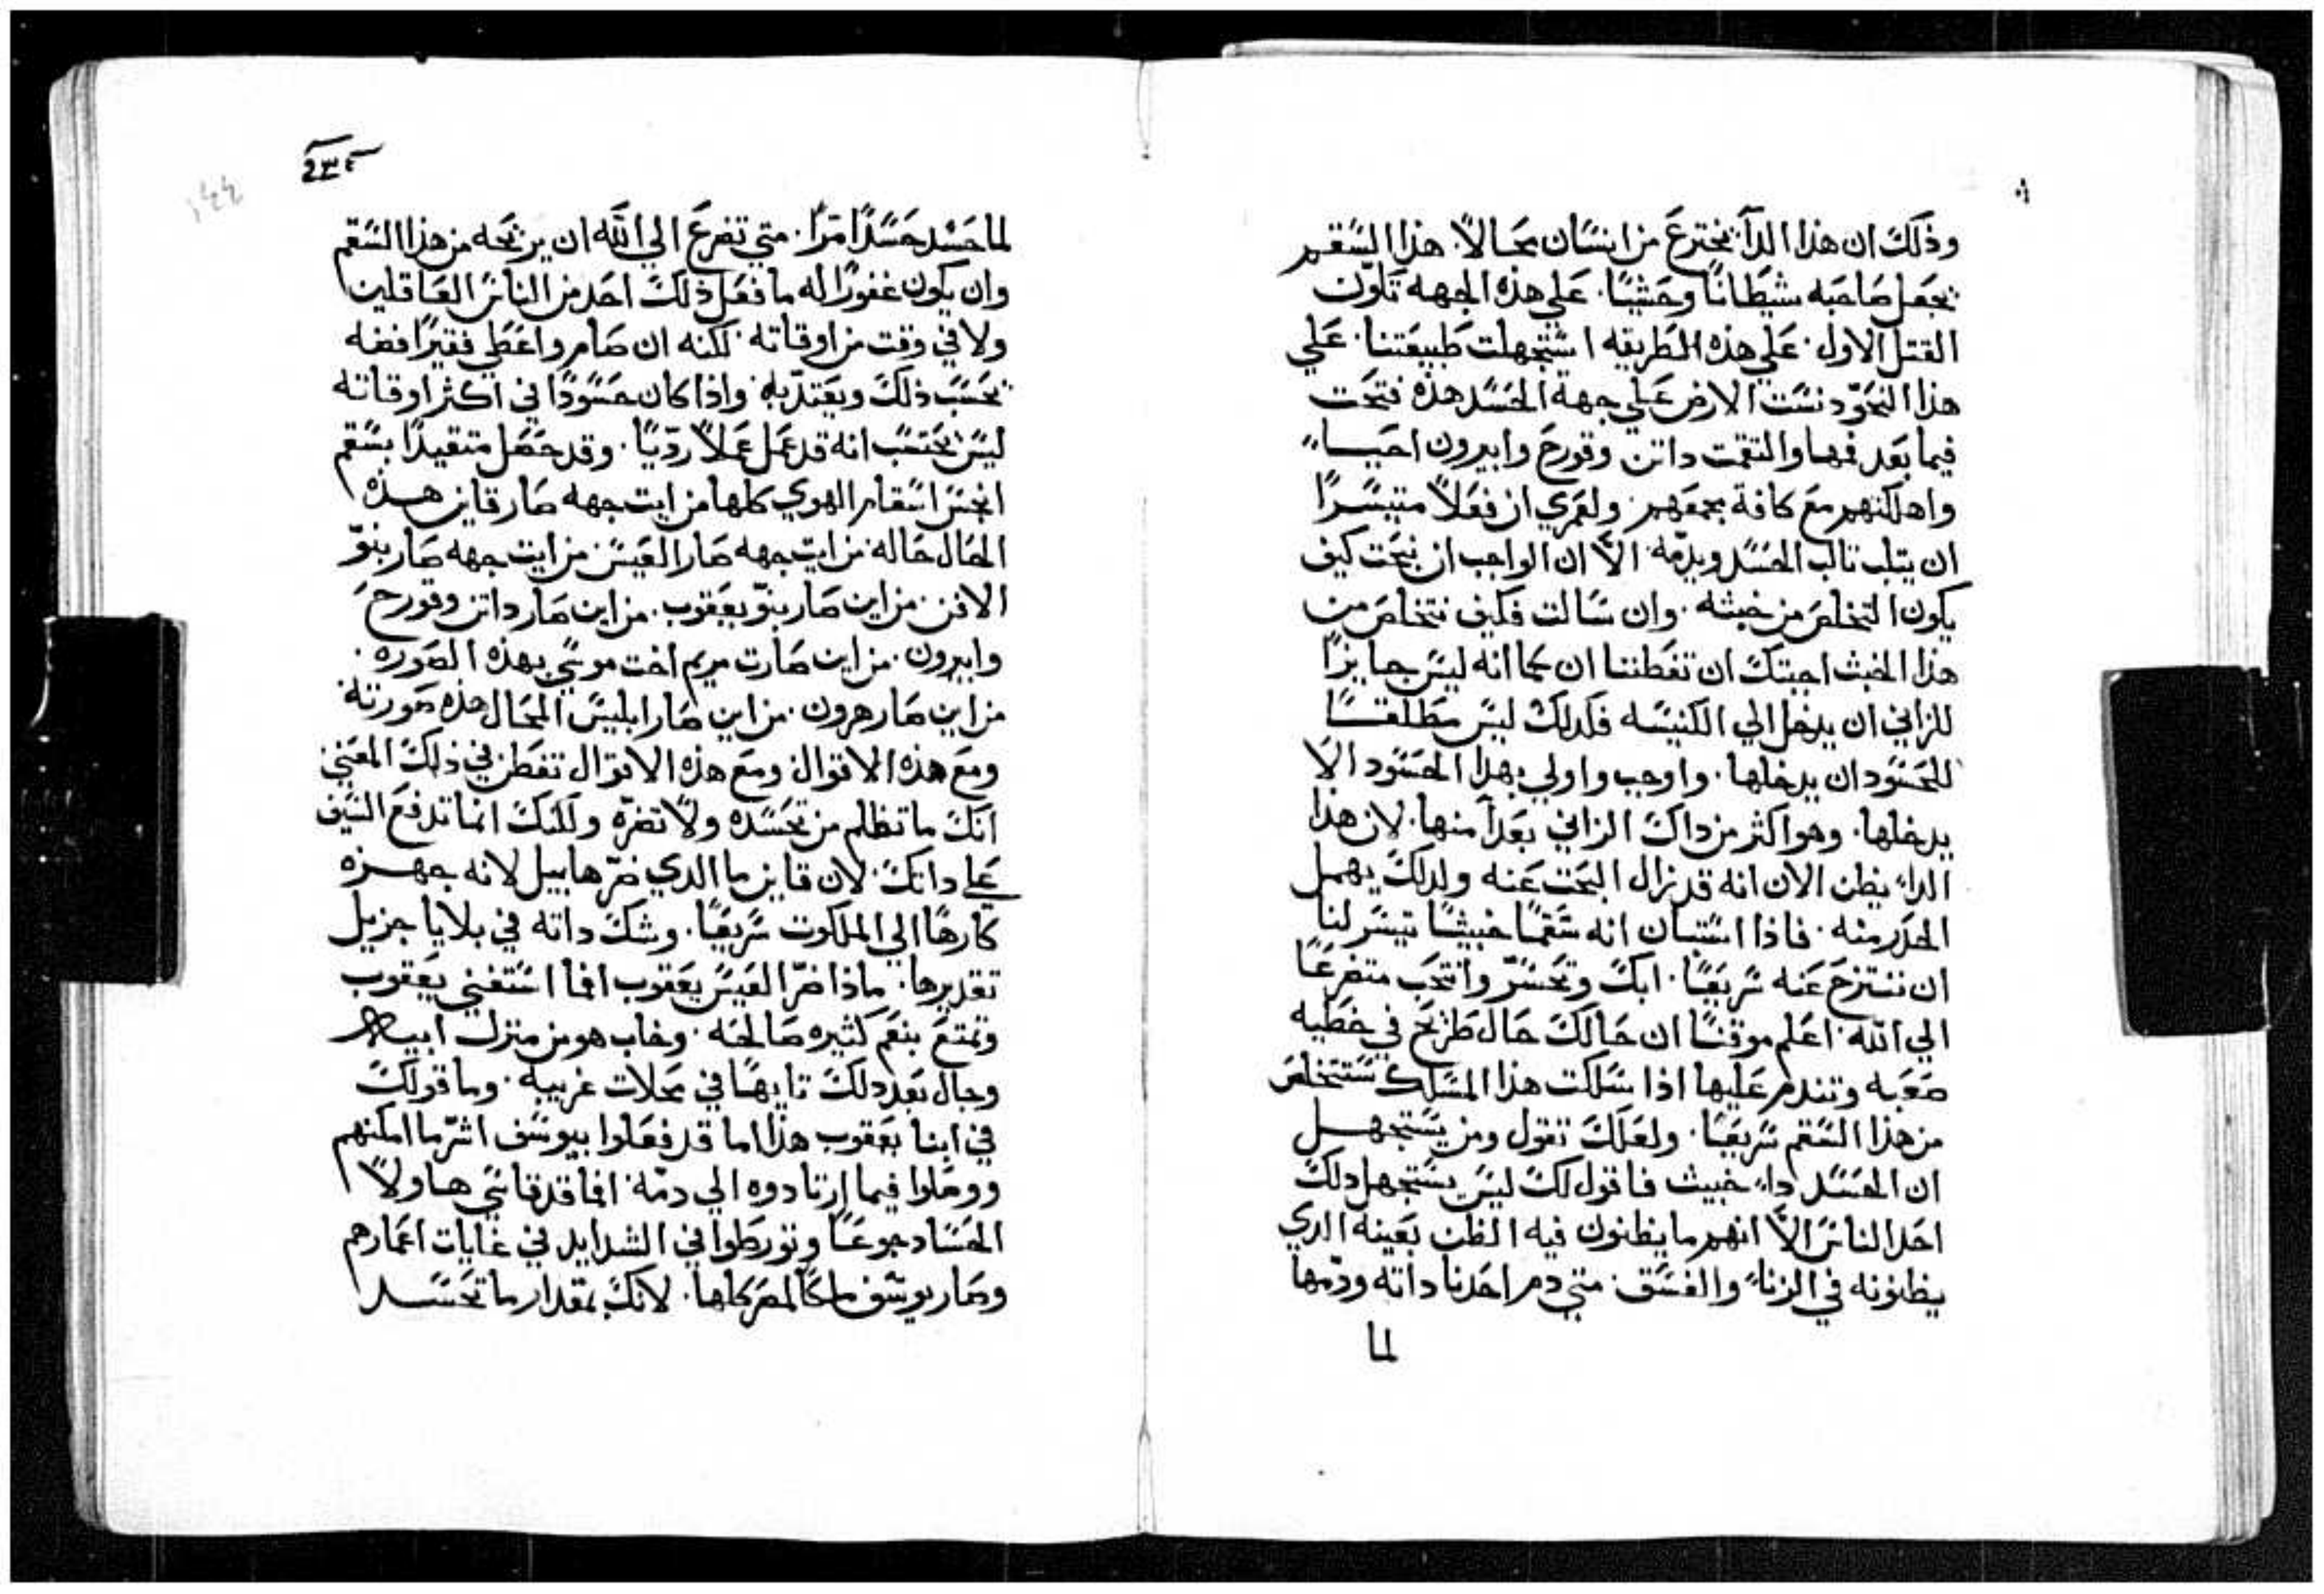 وذلك ان هذا الدآ يخترع من انسان محالاً. هذا السقم
يجعل صاحبه شيطانًا وحشيًا. علي هذه الجهه تلوّن
القتل الاول. علي هذه الطريقه استجهلت طبيعتنا. علي
هذا النحوّ دنست الارض علي جهة الحسد هذه فتحت
فيما بعد فمها والتقمت داتن وقورح وابيرون احيا"
واهلكتهم مع كافة جمعهم. ولعمري ان فعلاً متيسرًا
ان يتلب تالب الحسد ويذمّه الاّ ان الواجب ان نبحت كيف
يكون التخلص من خبثه. وان سالت فكيف نتخلص من
هذا الخبث اجبتك ان تفطننا ان كما انه ليس جايزًا
للزاني ان يدخل الي الكنيسه فكدلك ليس مطلقًا
للحسود ان يدخلها. واوجب واولي بهدا الحسود الا
يدخلها. وهو اكثر من داك الزاني بعدآ منها. لان هذا
الداء يظن الان انه قد زال البحت عنه ولدلك يهمل
الحدر منه. فاذا استبان انه سقمًا خبيثًا تيسر لنا
ان ننتزح عنه سريعًا. ابك وتحسّر وانتحب متضرعًا
الي الله. اعلم موقنًا ان حالك حال طزيح في خطيه
صعبه وتندم عليها اذا سلكت هذا المسلك ستتخلص
من هذا السقم سريعًا. ولعلك تقول ومن يستجهل
ان الحسد داء خبيث فاقول لك ليس يستجهل دلك
احد الناس الاّ انهم ما يظنون فيه الظن بعينه الدي
يظنونه في الزناء والفسق. متي دم احدنا داته ودمّها
لما
٢٣٤
١٤٤
لما حسد حسدًا مرًا. متي تضرع الي الله ان يريحه من هذا السقم
وان يكون غفورًا له ما فعل ذلك احد من الناس الغافلين
ولا في وقت من اوقاته. لكنه ان صام واعطي فقيرًا فضه
يحسب ذلك ويعتدّ به واذا كان حسودًا في اكثر اوقاته
ليس يحتسب انه قد عمل عملاً رديًا. وقد حصل متقيدًا بسقم
انجس اسقام الهوي كلها من ايت جهه صار قاين هذه
الحال حاله. من ايت جهه صار العيس. من ايت جهه صار بنوّ
الافن. من اين صار بنوّ يعقوب. من اين صار داتن وقورح
وابيرون. من اين صارت مريم اخت موسي بهذه الصوره.
من اين صار هرون. من اين صار ابليس المحال هذه صورته
ومع هذه الاقوال ومع هذه الاقوال تفطن في ذلك المعني
انك ما تظلم من تحسده ولا تضرّه ولكنك انما تدفع السيف
علي داتك. لان قاين ما الدي ضرّ هابيل لانه جهزه
كارهًا الي الملكوت سريعًا. وشك داته في بلايا جزيل
تقديرها. ماذا ضرّ العيس يعقوب افما استغني يعقوب
وتمتع بنعم كثيره صالحه. وخاب هو من منزل ابيه
وجال بعد دلك تايهًا في محلات غريبه. وما قولك
في ابنا يعقوب هذا اما قد فعلوا بيوسف اشرّ ما امكنهم
ووصلوا فيما ارتادوه الي دمّه. افما قد قاسي هاولاً
الحساد جوعًا وتورطوا في الشدايد في غايات اعمارهم
وصار يوسف ملكًا لمصر كلها. لانك بمقدار ما تحسد